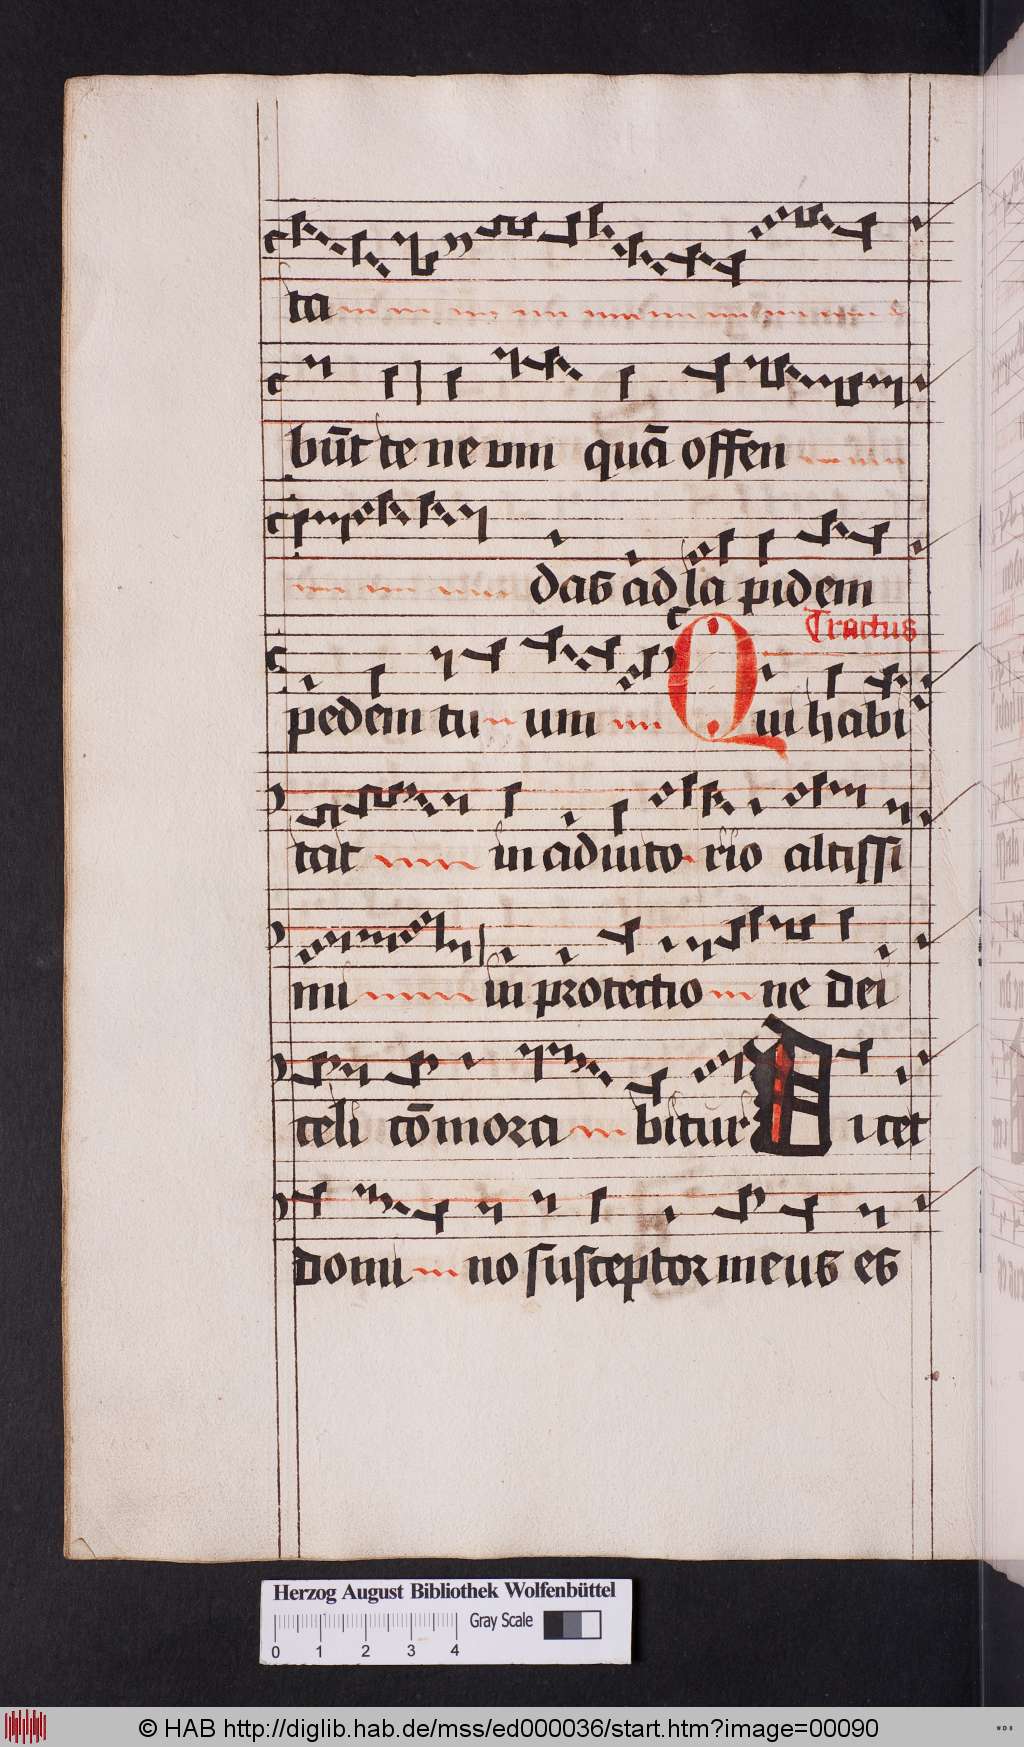 ta
būt te ne vm quā offen
das ad la pidem
Tractus
pedem tu um Qui habi
tat in adiuto rio altissi
mi in protectio ne dei
celi cōmora bitur Dicet
domi no susceptor meus es
Herzog August Bibliothek Wolfenbüttel
Gray Scale
0 1 2 3 4
© HAB http://diglib.hab.de/mss/ed000036/start.htm?image=00090